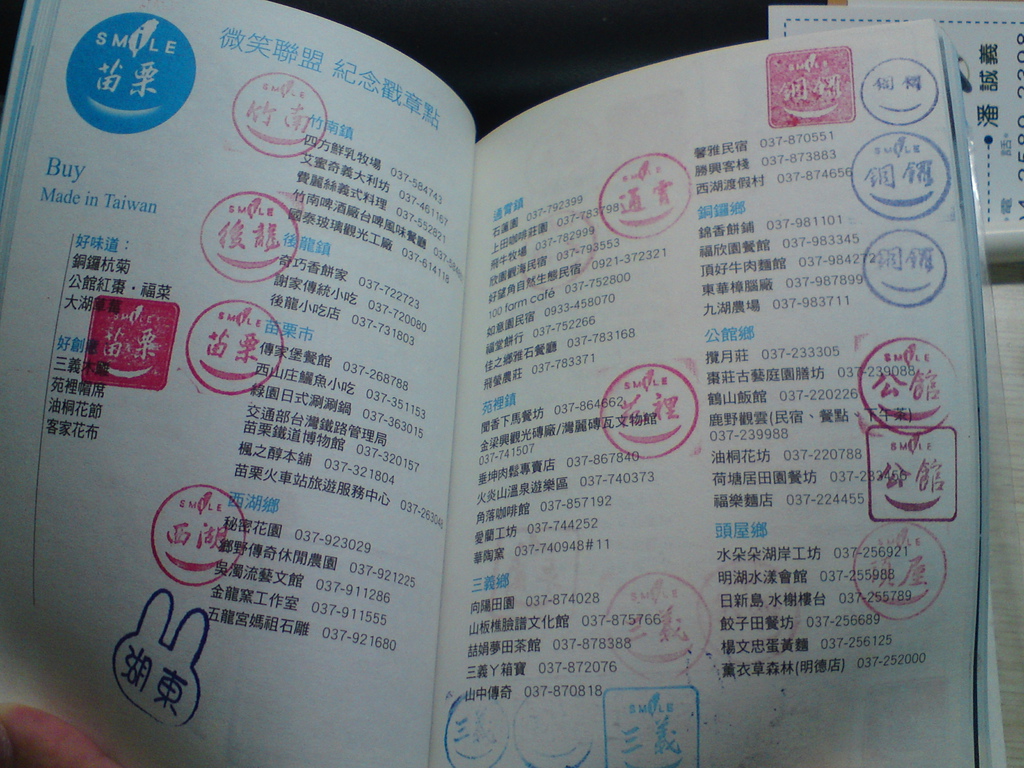 SMILE
苗栗
微笑聯盟 紀念戳章點
Buy
Made in Taiwan
好味道：
銅鑼杭菊
公館紅棗・福菜
大湖
好創
三義木
苑裡帽席
油桐花節
客家花布
SMILE
苗栗
SMILE
竹南
竹南鎮
四方鮮乳牧場 037-584743
艾蜜奇義大利坊 037-461167
費麗絲義式料理 037-552821
竹南啤酒廠台啤風味餐廳
國泰玻璃觀光工廠 037-614118
SMILE
後龍
後龍鎮
奇巧香餅家 037-722723
謝家傳統小吃 037-720080
後龍小吃店 037-731803
SMILE
苗栗
苗栗市
傳家堡餐館 037-268788
西山庄鱺魚小吃 037-351153
綠園日式涮涮鍋 037-363015
交通部台灣鐵路管理局
苗栗鐵道博物館 037-320157
楓之醇本舖 037-321804
苗栗火車站旅遊服務中心 037-263048
SMILE
西湖
西湖鄉
秘密花園 037-923029
鄉野傳奇休閒農園 037-921225
吳濁流藝文館 037-911286
金龍窯工作室 037-911555
五龍宮媽祖石雕 037-921680
湖東
SMILE
通霄
通霄鎮
石蓮園 037-792399
上田咖啡莊園 037-783798
飛牛牧場 037-782999
欣園觀海民宿 037-793553
好望角自然生態民宿 0921-372321
100 farm café 037-752800
如意園民宿 0933-458070
福堂餅行 037-752266
佳之鄉雅石餐廳 037-783168
飛螢農莊 037-783371
SMILE
苑裡
苑裡鎮
聞香下馬餐坊 037-864662
金梁興觀光磚廠/灣麗磚瓦文物館
037-741507
垂坤肉鬆專賣店 037-867840
火炎山溫泉遊樂區 037-740373
角落咖啡館 037-857192
愛蘭工坊 037-744252
華陶窯 037-740948#11
三義鄉
向陽田園 037-874028
山板樵臉譜文化館 037-875766
喆娟夢田茶館 037-878388
三義ㄚ箱寶 037-872076
山中傳奇 037-870818
SMILE
三義
三義
SMILE
三義
SMILE
銅鑼
銅鑼
SMILE
銅鑼
銅鑼
馨雅民宿 037-870551
勝興客棧 037-873883
西湖渡假村 037-874656
銅鑼鄉
錦香餅鋪 037-981101
福欣園餐館 037-983345
頂好牛肉麵館 037-984272
東華樟腦廠 037-987899
九湖農場 037-983711
公館鄉
攬月莊 037-233305
棗莊古藝庭園膳坊 037-239088
鶴山飯館 037-220226
鹿野觀雲(民宿、餐點、下午茶)
037-239988
油桐花坊 037-220788
荷塘居田園餐坊
福樂麵店 037-224455
SMILE
公館
SMILE
公館
頭屋鄉
水朵朵湖岸工坊 037-256921
明湖水漾會館 037-255988
日新島 水榭樓台 037-255789
餃子田餐坊 037-256689
楊文忠蛋黃麵 037-256125
薰衣草森林(明德店) 037-252000
SMILE
頭屋
潘誠義